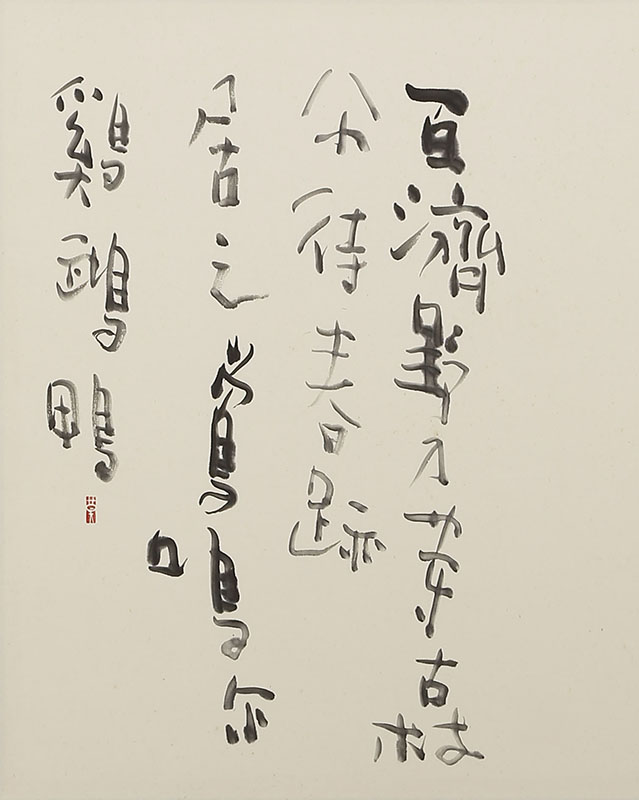 百濟野乃芽古枝
尓待春跡
居之鶯鳴尓
鷄鵡鴨